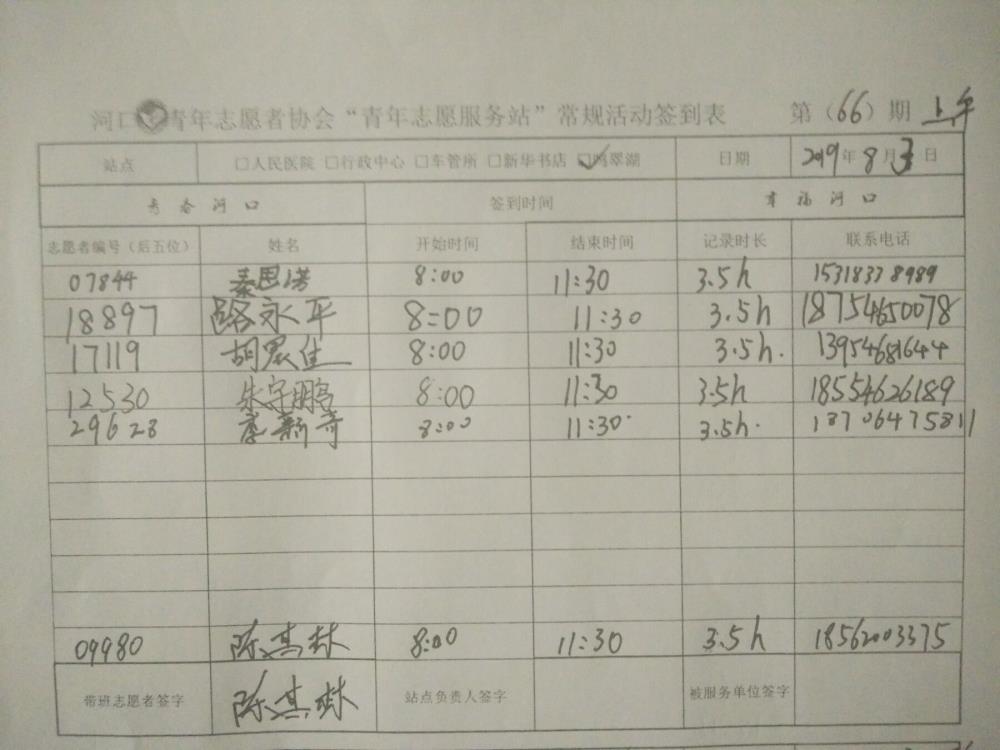 河口青年志愿者协会“青年志愿服务站”常规活动签到表 第（66）期 上午
站点 □人民医院 □行政中心 □车管所 □新华书店 ☑鸣翠湖 日期 2019年8月3日
青春河口 签到时间 幸福河口
志愿者编号（后五位） 姓名 开始时间 结束时间 记录时长 联系电话
07844 秦思诺 8:00 11:30 3.5h 15318338989
18897 路永平 8:00 11:30 3.5h 18754650078
17119 胡晨佳 8:00 11:30 3.5h. 13954681644
12530 朱守鹏 8:00 11:30 3.5h 18554626189
29628 新奇 8:00 11:30 3.5h. 18706475811
09980 陈其林 8:00 11:30 3.5h 18562003375
带班志愿者签字 陈其林 站点负责人签字 被服务单位签字